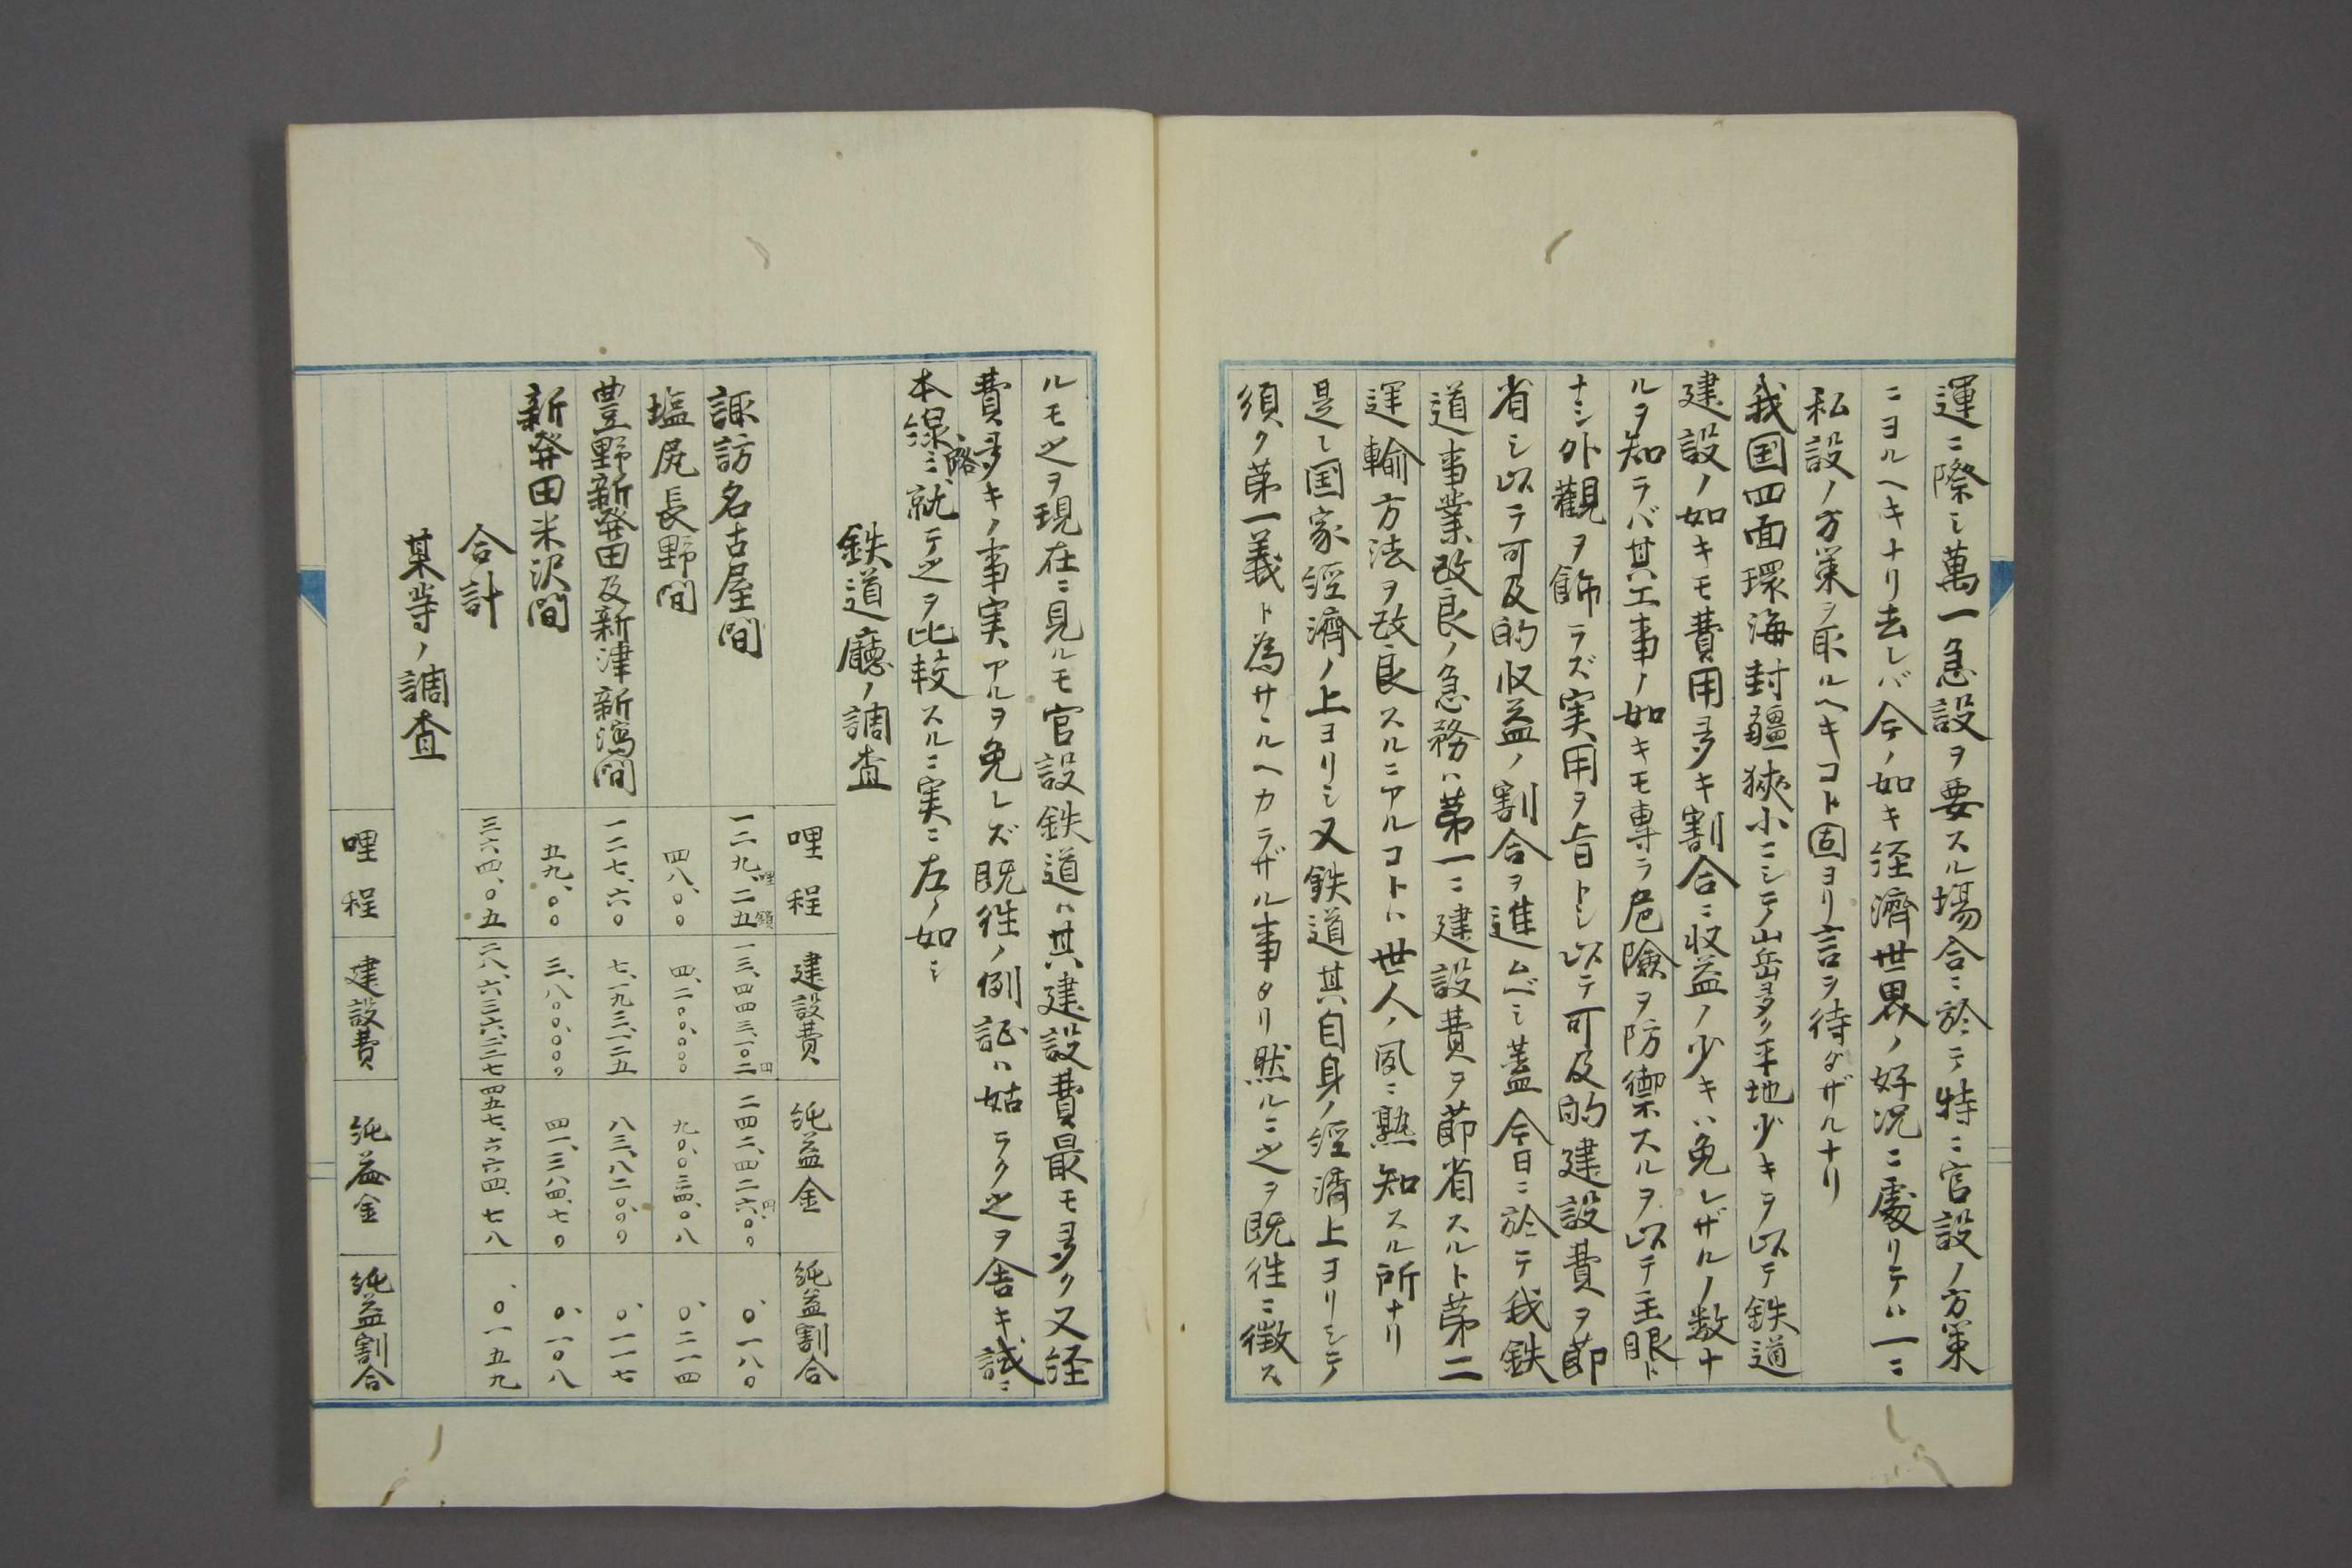 運ニ際シ萬一急設ヲ要スル場合ニ於テ特ニ官設ノ方策
ニヨルヘキナリ去レバ今ノ如キ経濟世界ノ好況ニ處リテハ一ニ
私設ノ方策ヲ取ルヘキコト固ヨリ言ヲ待タザルナリ
我国四面環海封疆狹小ニシテ山岳多ク平地少キヲ以テ鉄道
建設ノ如キモ費用多キ割合ニ収益ノ少キハ免レザルノ数ナ
ルヲ知ラバ其工事ノ如キモ専ラ危險ヲ防禦スルヲ以テ主眼ト
ナシ外觀ヲ飾ラズ実用ヲ旨トシ以テ可及的建設費ヲ節
省シ以テ可及的収益ノ割合ヲ進ムベシ蓋今日ニ於テ我鉄
道事業改良ノ急務ハ第一ニ建設費ヲ節省スルト第二
運輸方法ヲ改良スルニアルコトハ世人ノ夙ニ熟知スル所ナリ
是レ国家経濟ノ上ヨリシ又鉄道其自身ノ経濟上ヨリシテ
須ク第一義ト為サヾルヘカラザル事タリ然ルニ之ヲ既往ニ徴ス
ルモ之ヲ現在ニ見ルモ官設鉄道ハ其建設費最モ多ク又経
費多キノ事実アルヲ免レズ既往ノ例証ハ姑ラク之ヲ舎キ試ニ
本線路ニ就テ之ヲ比較スルニ実ニ左ノ如シ
鉄道廳ノ調査
哩程 建設費 純益金 純益割合
諏訪名古屋間 一二九、哩二五鎖 一三、四四三、一〇二円 二四二、四二六、円〇〇 、〇一八〇
塩尻長野間 四八、〇〇 四、二〇〇、〇〇〇 九〇、〇三四、〇八 〇、二一四
豊野新発田及新津新潟間 一二七、六〇 七、一九三、一二五 八三、八二〇、〇〇 〇、一一七
新発田米沢間 五九、〇〇 三、八〇〇、〇〇〇 四一、三八四、七〇 〇、一〇八
合計 三六四、〇五 二八、六三六、二二七 四五七、六六四、七八 、〇一五九
某等ノ調査
哩程 建設費 純益金 純益割合